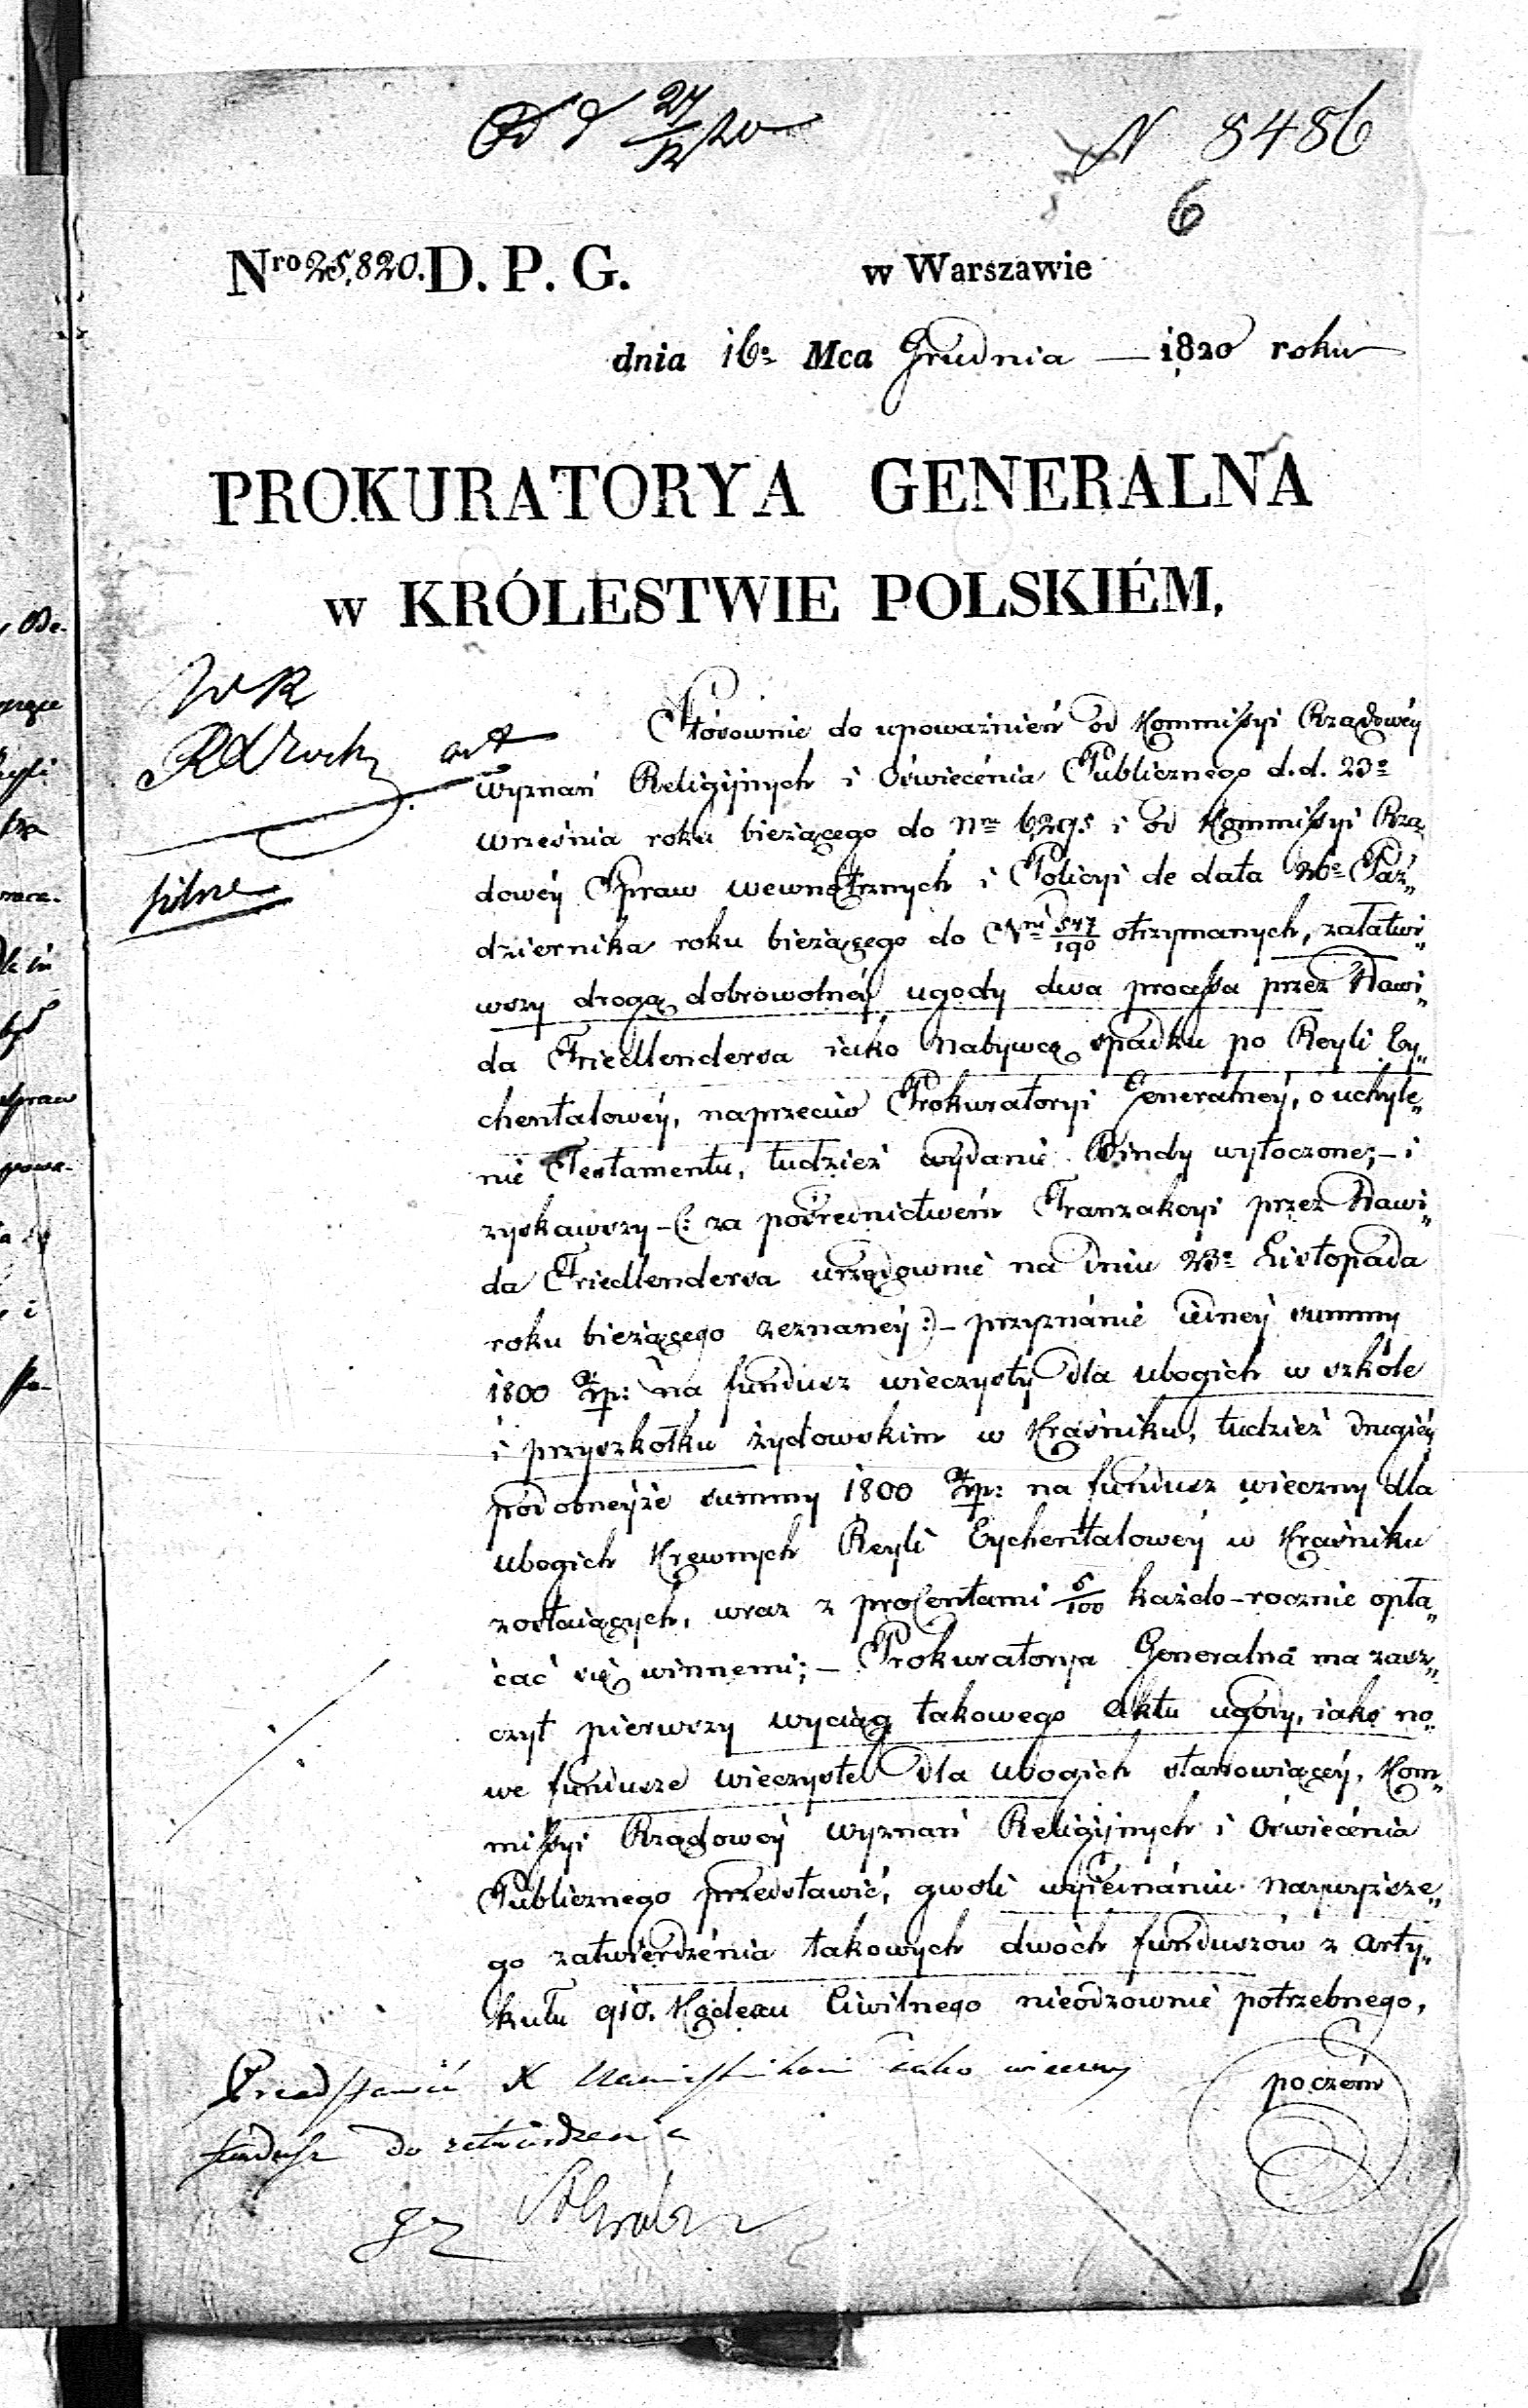 N 8486
6
Nro 25,820. D. P. G. w Warszawie
dnia 16º Mca Grudnia — 1820 roku
PROKURATORYA GENERALNA
w KRÓLESTWIE POLSKIÉM,
Stósownie do upoważnień od Kommissyi Rządowéy
Wyznań Religiynych i Oświecénia Publicznego d. d. 23º
Września roku bieżącego do Nru 6,295 i od Kommissyi Rzą„
dowéy Spraw wewnętrznych i Policyi de data 26º Paź„
dziernika roku bieżącego do Nru 547/190 otrzymanych, załatwi„
wszy drogą dobrowolnéy ugody dwa processa przez Dawi„
da Friedlendersa iako Nabywcę spadku po Reyli Ey„
chentalowéy, naprzeciw Prokuratoryi Generalnéy, o uchyle„
nie Testamentu, tudzież wydanie Bindy wytoczone; – i
zyskawszy – (: za pośrednictwem Tranzakcyi przez Dawi„
da Friedlendersa urzędownie na dniu 23º Listopada
roku bieżącego zeznanéy :) – przyznánie iednéy summy
1800 Złp: na fundusz wieczysty dla ubogich w szkóle
i przyszkołku żydowskim w Kraśniku, tudzież drugiéy
podobnéyże summy 1800 Złp: na fundusz wieczny dla
ubogich Krewnych Reyli Eychentalowéy w Kraśniku
zostaiących, wraz z procentami 5/100 każdo-rocznie opła„
cać się winnemi; – Prokuratorya Generalna ma zasz„
czyt pierwszy wyciąg takowego Aktu ugody, iako no„
we fundusze wieczyste dla ubogich stanowiącéy, Kom„
missyi Rządowéy Wyznań Religiynych i Oświecénia
Publicznego przedstawić, gwoli wyiednániu Naywyższe„
go zatwierdzénia takowych dwóch funduszów z Arty„
kułu 910. Kodexu Ciwilnego nieodzownie potrzebnego,
poczém
pilne
Przedstawić X Namiestnikowi iako wieczny
fundusz do zatwierdzenia